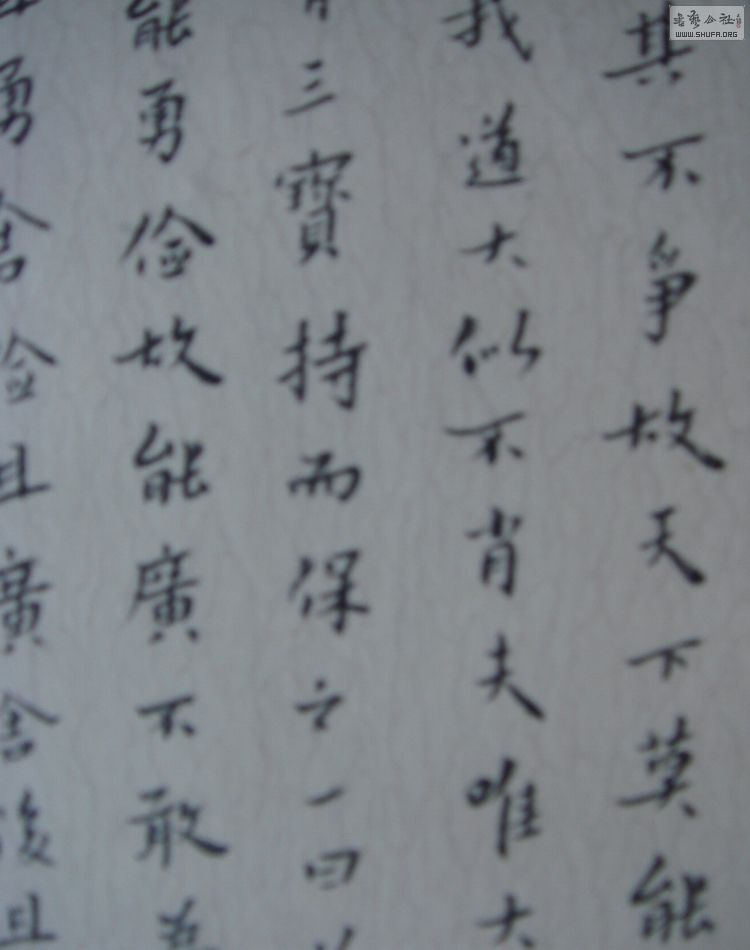 其不爭故天下莫能
我道大似不肖夫唯大
三寶持而保之一曰
能勇儉故能廣不敢為
勇舍儉且廣舍後且
WWW.SHUFA.ORG